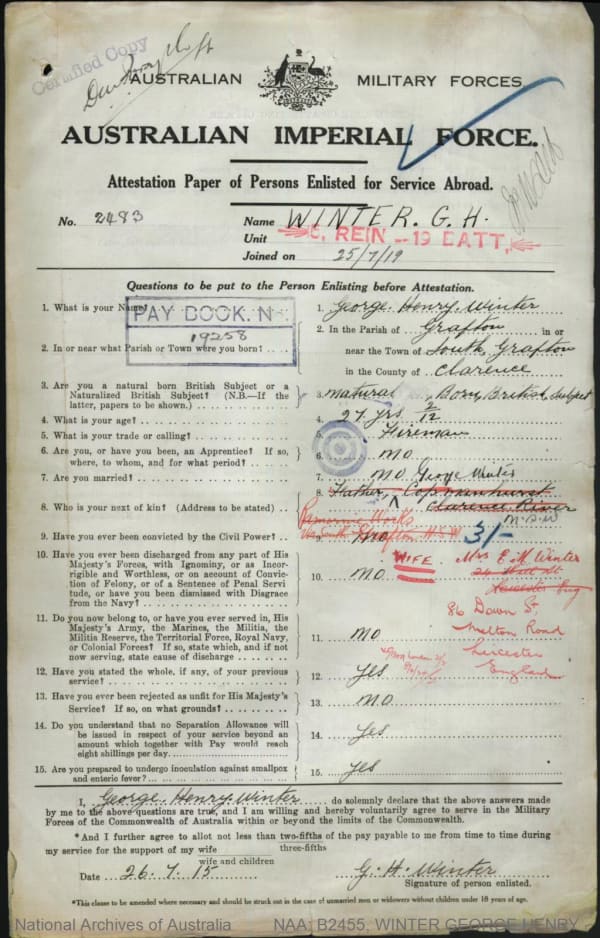 Certified Copy
AUSTRALIAN MILITARY FORCES
AUSTRALIAN IMPERIAL FORCE.
Attestation Paper of Persons Enlisted for Service Abroad.
No. 2483 Name WINTER. G. H.
Unit 5. REIN - 19 BATT.
Joined on 25/7/19
Questions to be put to the Person Enlisting before Attestation.
1. What is your Name? 1. George Henry Winter
PAY BOOK. N
19258
2. In or near what Parish or Town were you born? 2. In the Parish of Grafton in or
near the Town of South Grafton
in the County of Clarence
3. Are you a natural born British Subject or a
Naturalized British Subject? (N.B.—If the
latter, papers to be shown.) 3. natural Born British Subject
4. What is your age? 4. 27 yrs 2/12
5. What is your trade or calling? 5. Fireman
6. Are you, or have you been, an Apprentice? If so,
where, to whom, and for what period? 6. no
7. Are you married? 7. no George Winter
8. Who is your next of kin? (Address to be stated) 8. Father, Copmanhurst
Clarence River
N.S.W
Ramornie Works
Via South Grafton N.S.W
9. Have you ever been convicted by the Civil Power? 9. no 3/-
10. Have you ever been discharged from any part of His
Majesty's Forces, with Ignominy, or as Incor-
rigible and Worthless, or on account of Convic-
tion of Felony, or of a Sentence of Penal Servi-
tude, or have you been dismissed with Disgrace
from the Navy? 10. no
WIFE Mrs E. M. Winter
Leicester Eng
86 Down St
Melton Road
Leicester
England
11. Do you now belong to, or have you ever served in, His
Majesty's Army, the Marines, the Militia, the
Militia Reserve, the Territorial Force, Royal Navy,
or Colonial Forces? If so, state which, and if not
now serving, state cause of discharge 11. no
12. Have you stated the whole, if any, of your previous
service? 12. yes
13. Have you ever been rejected as unfit for His Majesty's
Service? If so, on what grounds? 13. no
14. Do you understand that no Separation Allowance will
be issued in respect of your service beyond an
amount which together with Pay would reach
eight shillings per day. 14. yes
15. Are you prepared to undergo inoculation against smallpox
and enteric fever? 15. yes
I, George Henry Winter do solemnly declare that the above answers made
by me to the above questions are true, and I am willing and hereby voluntarily agree to serve in the Military
Forces of the Commonwealth of Australia within or beyond the limits of the Commonwealth.
*And I further agree to allot not less than two-fifths of the pay payable to me from time to time during
three-fifths
my service for the support of my wife
wife and children
Date 26.7.15 G. H. Winter
Signature of person enlisted.
*This clause to be amended where necessary and should be struck out in the case of unmarried men or widowers without children under 18 years of age.
National Archives of Australia NAA: B2455, WINTER GEORGE HENRY